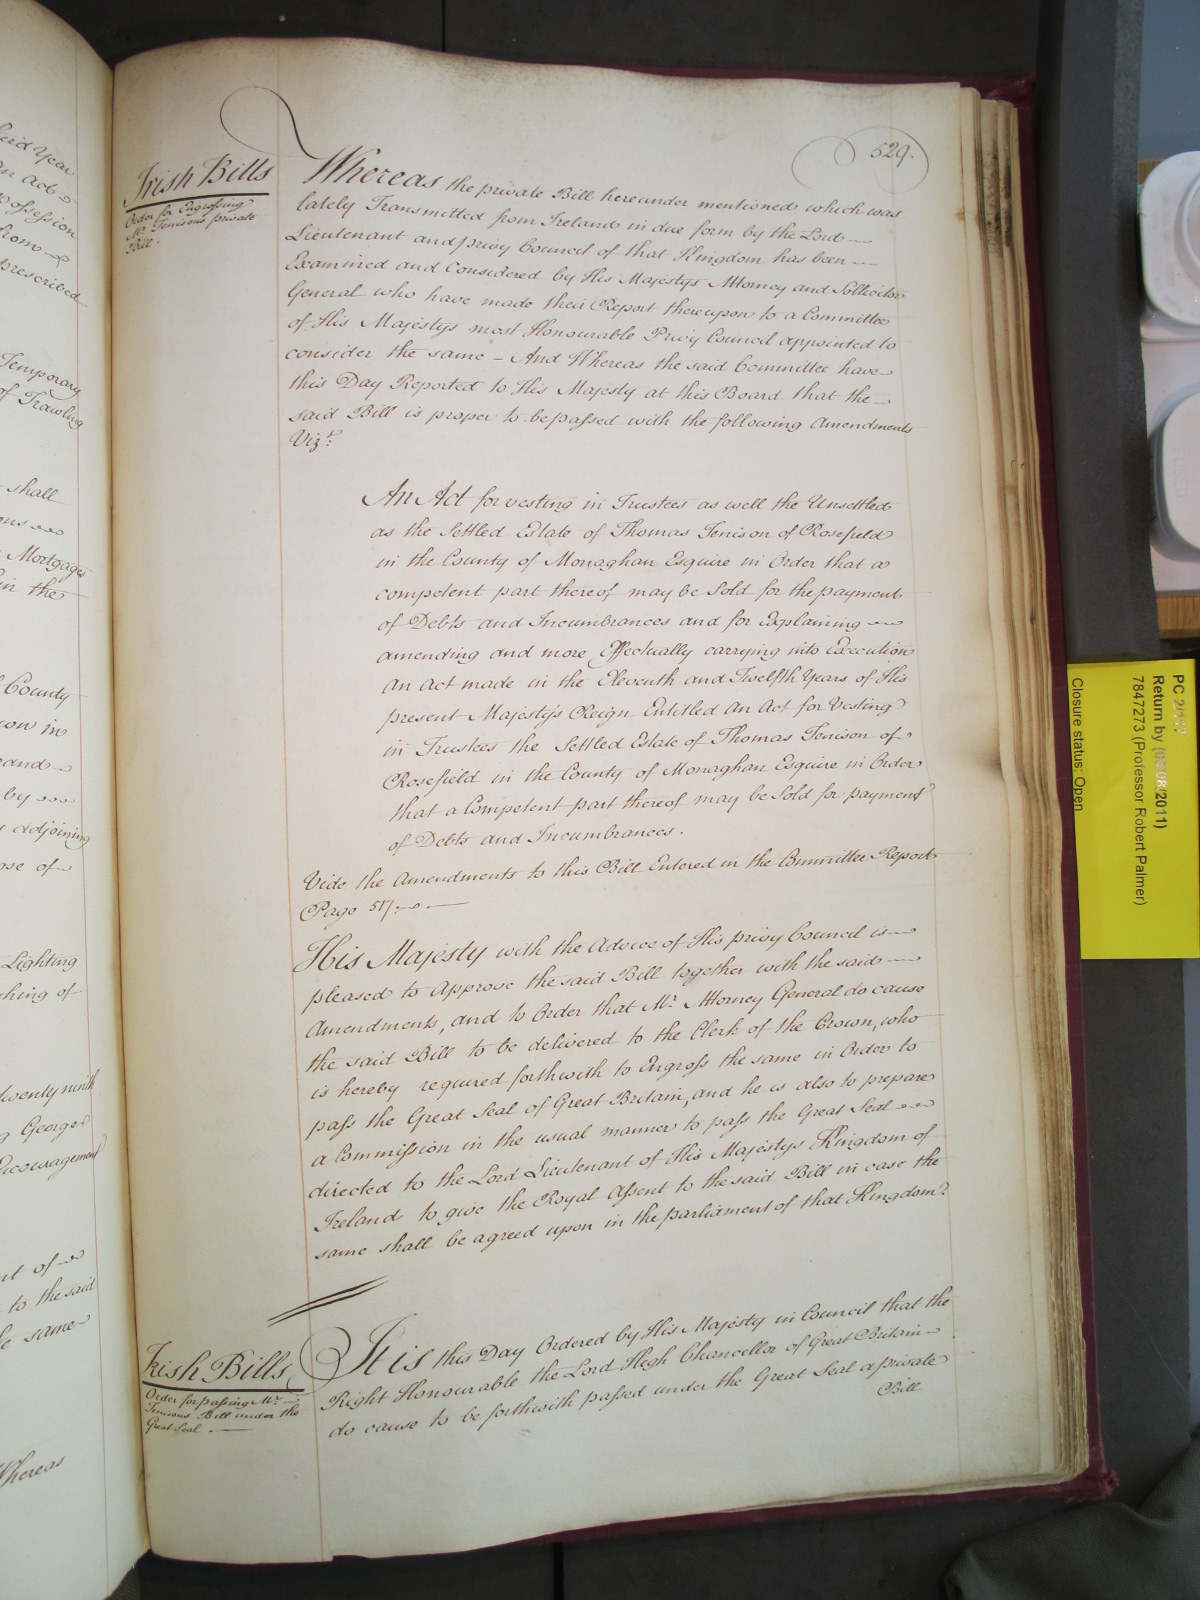 529.
Irish Bills
Order for Engrossing
Mr. Tenisons private
Bill.
Whereas the private Bill hereunder mentioned which was
lately Transmitted from Ireland in due form by the Lord
Lieutenant and privy Council of that Kingdom has been
Examined and Considered by His Majestys Attorney and Sollicitor
General who have made their Report thereupon to a Committee
of His Majestys most Honourable Privy Council appointed to
consider the same - And Whereas the said Committee have
this Day Reported to His Majesty at this Board that the
said Bill is proper to be passed with the following Amendments
Vizt.
An Act for vesting in Trustees as well the Unsettled
as the Settled Estate of Thomas Tenison of Rosefield
in the County of Monaghan Esquire in Order that a
competent part thereof may be Sold for the payment
of Debts and Incumbrances and for Explaining
amending and more Effectually carrying into Execution
an Act made in the Eleventh and Twelfth Years of His
present Majesty's Reign Entitled An Act for Vesting
in Trustees the Settled Estate of Thomas Tenison of
Rosefield in the County of Monaghan Esquire in Order
that a Competent part thereof may be Sold for payment
of Debts and Incumbrances.
Vide the Amendments to this Bill Entered in the Committee Report
Page 517
His Majesty with the Advice of His privy Council is
pleased to Approve the said Bill together with the said
Amendments, and to Order that Mr. Attorney General do cause
the said Bill to be delivered to the Clerk of the Crown, who
is hereby required forthwith to Engross the same in Order to
pass the Great Seal of Great Britain, and he is also to prepare
a Commission in the usual manner to pass the Great Seal
directed to the Lord Lieutenant of His Majestys Kingdom of
Ireland to give the Royal Assent to the said Bill in case the
same shall be agreed upon in the parliament of that Kingdom.
Irish Bills
Order for passing Mr.
Tenisons Bill under the
Great Seal
It is this Day Ordered by His Majesty in Council that the
Right Honourable the Lord High Chancellor of Great Britain
do cause to be forthwith passed under the Great Seal a private
Bill
said Year
an Act
possession
from
prescribed
Temporary
of Trawling
shall
Mortgages
in the
County
and
by
adjoining
of
Lighting
of
twenty ninth
George
Encouragement
of
to the said
same
Whereas
PC 2/117
Return by (05/08/2011)
7847273 (Professor Robert Palmer)
Closure status: Open